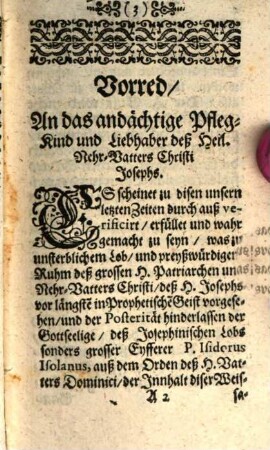 ( 3 )
Vorred/
An das andächtige Pfleg-
Kind und Liebhaber deß Heil.
Nehr-Vatters Christi
Josephs.
ES scheinet zu disen unsern
letzten Zeiten durch auß ve-
rificirt/ erfüllet und wahr
gemacht zu seyn/ was zu
unsterblichem Lob/ und preyßwürdiger
Ruhm deß grossen H. Patriarchen un
Nehr-Vatters Christi/ deß H. Josephs
vor längstē in Prophetischē Geist vorgese-
hen/ und der Posterität hinderlassen der
Gottseelige/ deß Josephinischen Lobs
sonders grosser Eyfferer P. Isidorus
Isolanus, auß dem Orden deß H. Vat-
ters Dominici/ der Innhalt diser Weis-
A 2 sa-